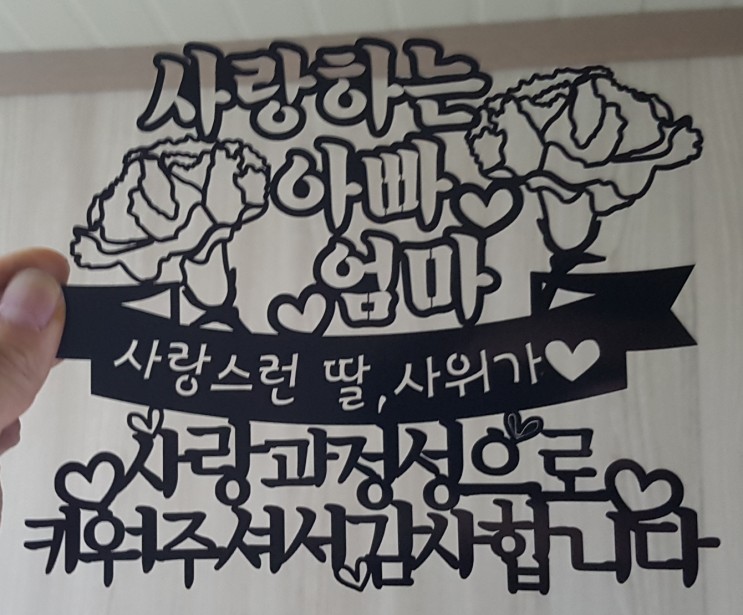 사랑하는
아빠♡
♡엄마
사랑스런 딸,사위가♥
사랑과정성으로
키워주셔서감사합니다